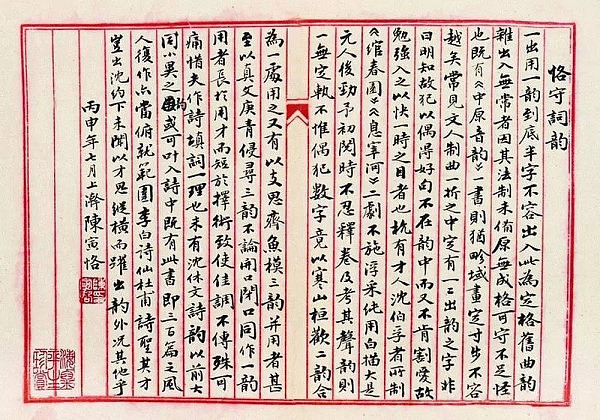 恪守詞韵
一出用一韵到底半字不容出入此為定格舊曲韵
雜出入無常者因其法制未備原無成格可守不足怪
也既有《中原音韵》一書則猶畛域畫定寸步不容
越矣常見文人制曲一折之中定有一二出韵之字非
曰明知故犯以偶得好句不在韵中而又不肯割愛故
勉強入之以快一時之目者也杭有才人沈伯孚者所制
《綰春園》《息宰河》二劇不施浮采純用白描大是
元人後勁予初閱時不忍釋卷及考其聲韵則
一無定執不惟偶犯數字竟以寒山桓歡二韵合
為一處用之又有以支思齊魚模三韵并用者甚
至以真文庚青侵尋三韵不論開口閉口同作一韵
用者長於用才而短於擇術致使佳調不傳殊可
痛惜夫作詩填詞一理也未有沈休文詩韵以前大
同小異之韵或可叶入詩中既有此書即三百篇之風
人復作亦當俯就範圍李白詩仙杜甫詩聖其才
豈出沈約下未聞以才思縱橫而躍出韵外況其他乎
丙申年七月上澣陳寅恪